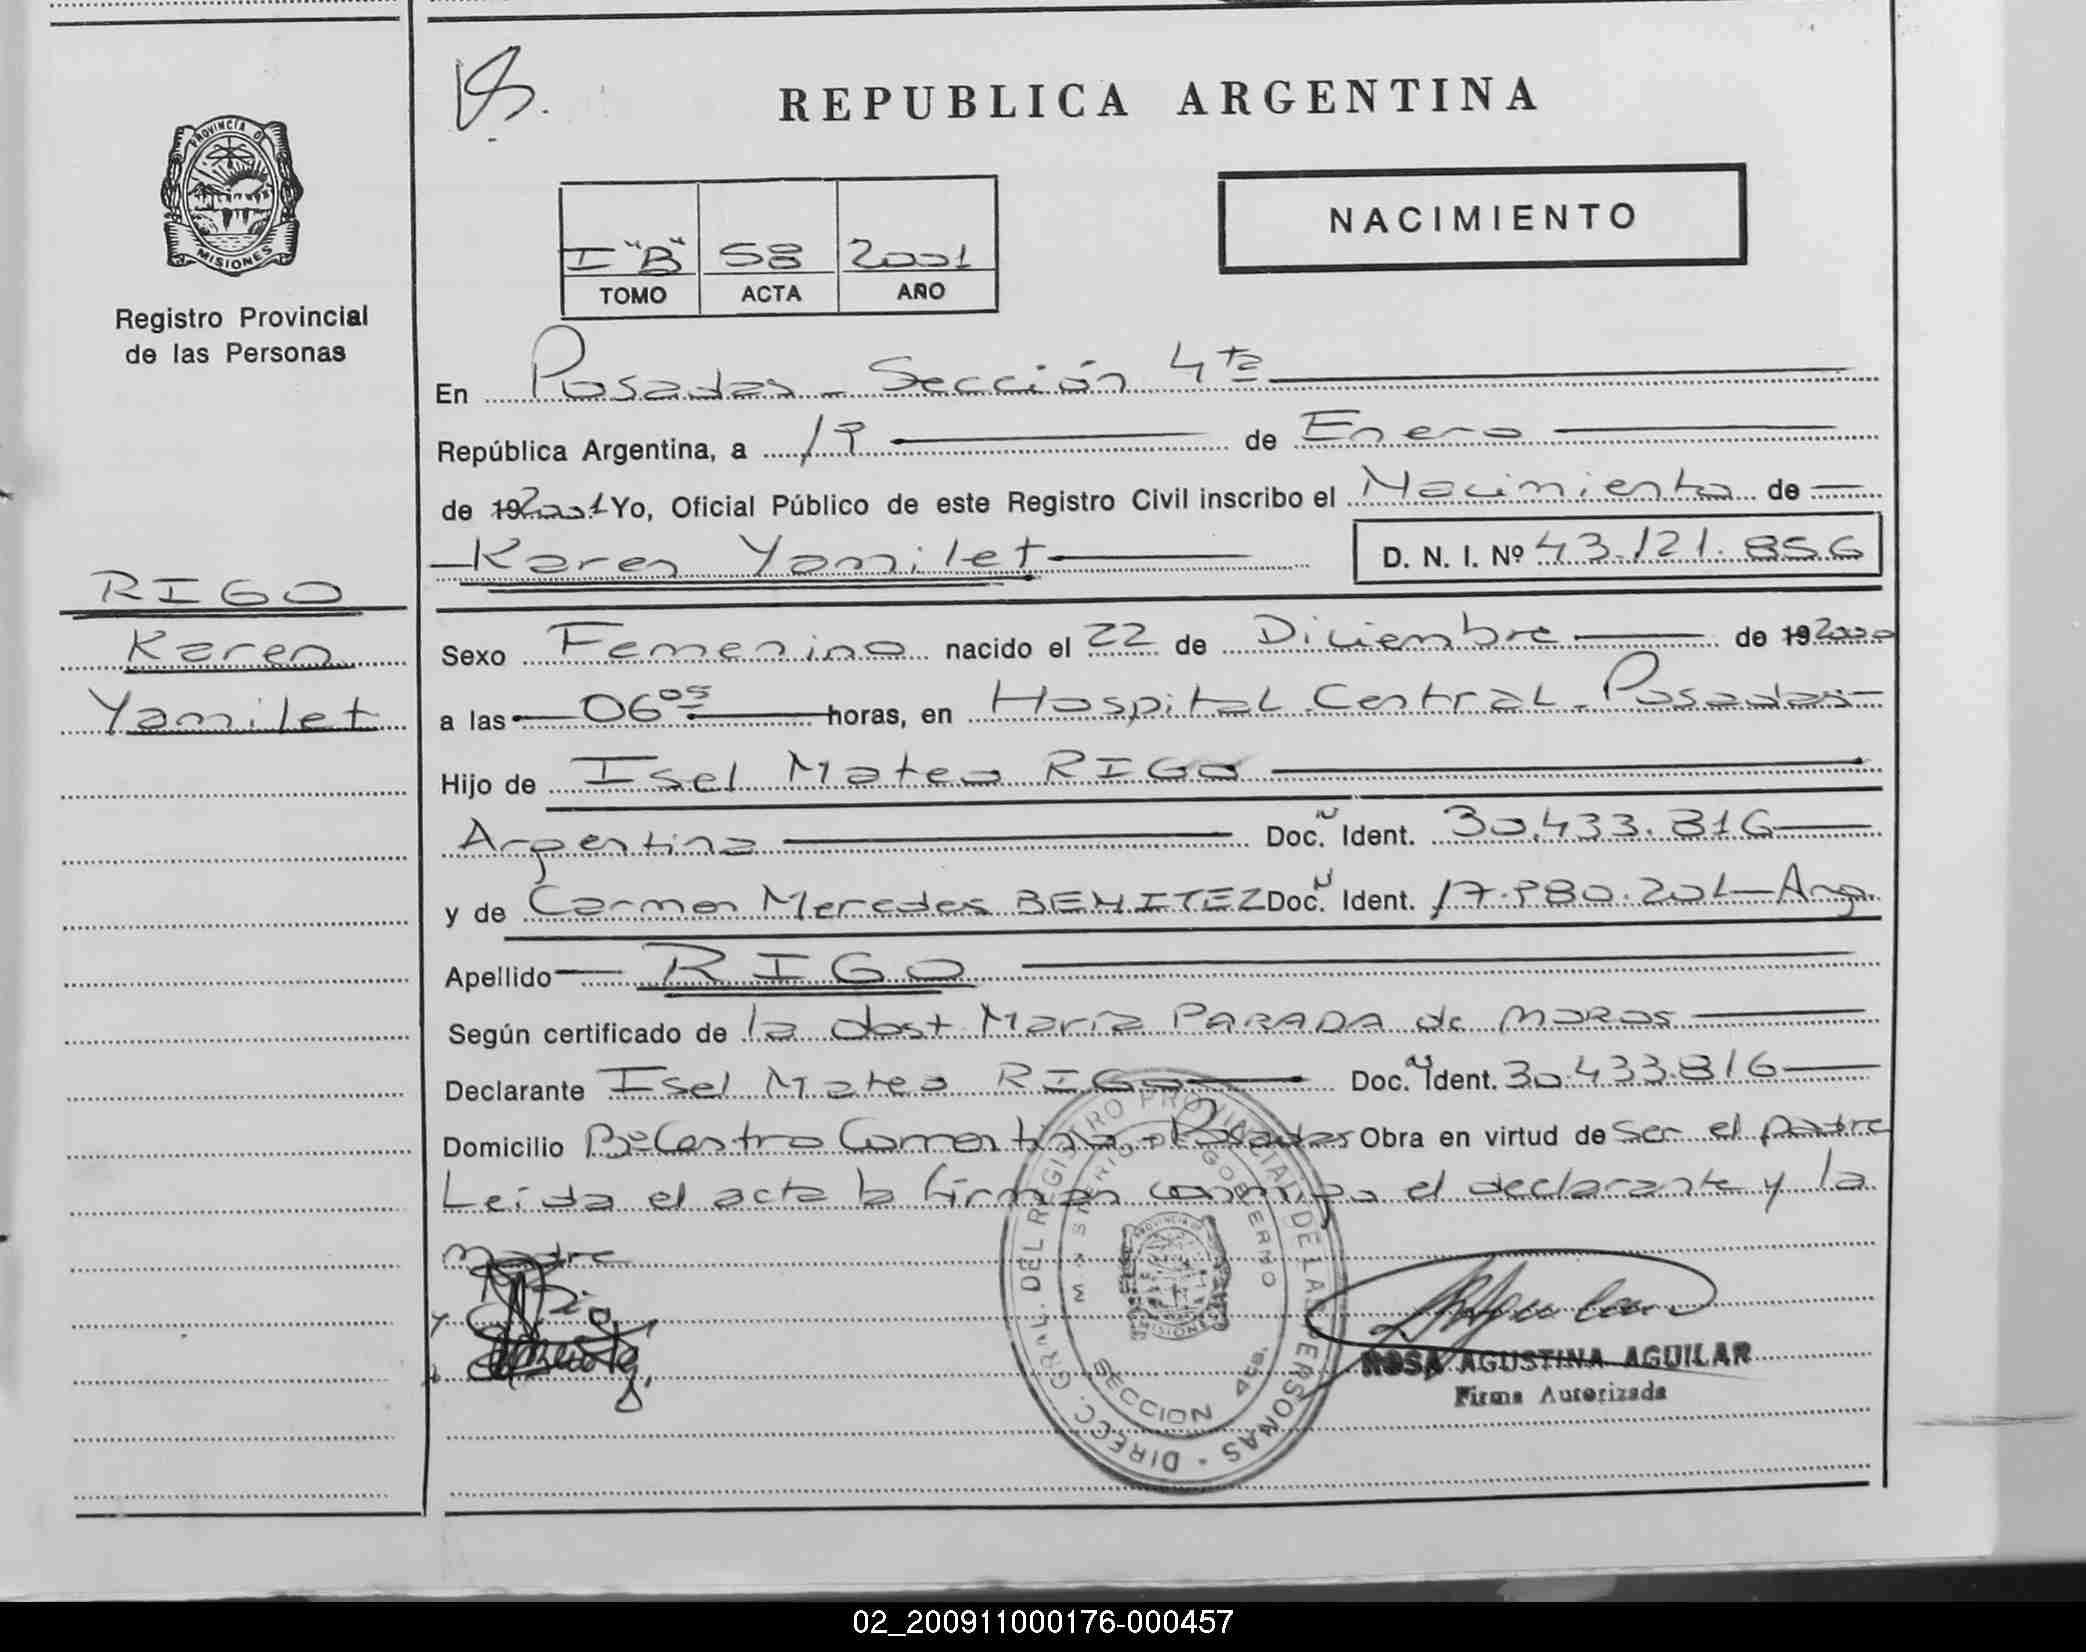 REPUBLICA ARGENTINA
NACIMIENTO
I "B" 58 2001
TOMO ACTA AÑO
PROVINCIA DE
MISIONES
Registro Provincial
de las Personas
En Posadas - Sección 4ta
República Argentina, a 19 de Enero
de 192001 Yo, Oficial Público de este Registro Civil inscribo el Nacimiento de
Karen Yamilet D. N. I. Nº 43.121.856
RIGO
Karen
Yamilet
Sexo Femenino nacido el 22 de Diciembre de 192000
a las 06 05 horas, en Hospital Central - Posadas
Hijo de Isel Mateo RIGO
Argentina Doc. N Ident. 30.433.816
y de Carmen Mercedes BENITEZ Doc. N Ident. 17.980.201 - Arg.
Apellido RIGO
Según certificado de la obst. María PARADA de MOROS
Declarante Isel Mateo RIGO Doc. N Ident. 30.433.816
Domicilio Bº Centro Posadas Obra en virtud de ser el padre
Leída el acta la firman conmigo el declarante y la
madre
DIRECC. GRAL. DEL REGISTRO PROVINCIAL DE LAS PERSONAS
MINISTERIO DE GOBIERNO
PROVINCIA DE
MISIONES
SECCION 4ta.
ROSA AGUSTINA AGUILAR
Firma Autorizada
02_200911000176-000457